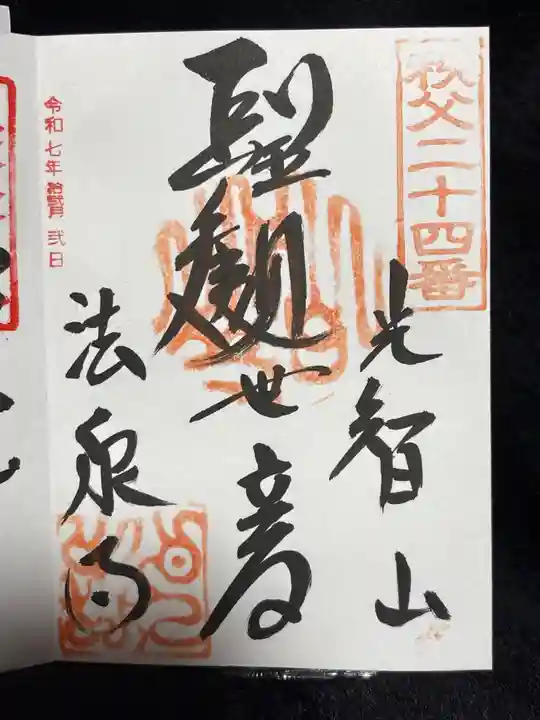 秩父二十四番
光智山
聖観世音
法泉寺
令和七年拾弐月弐日